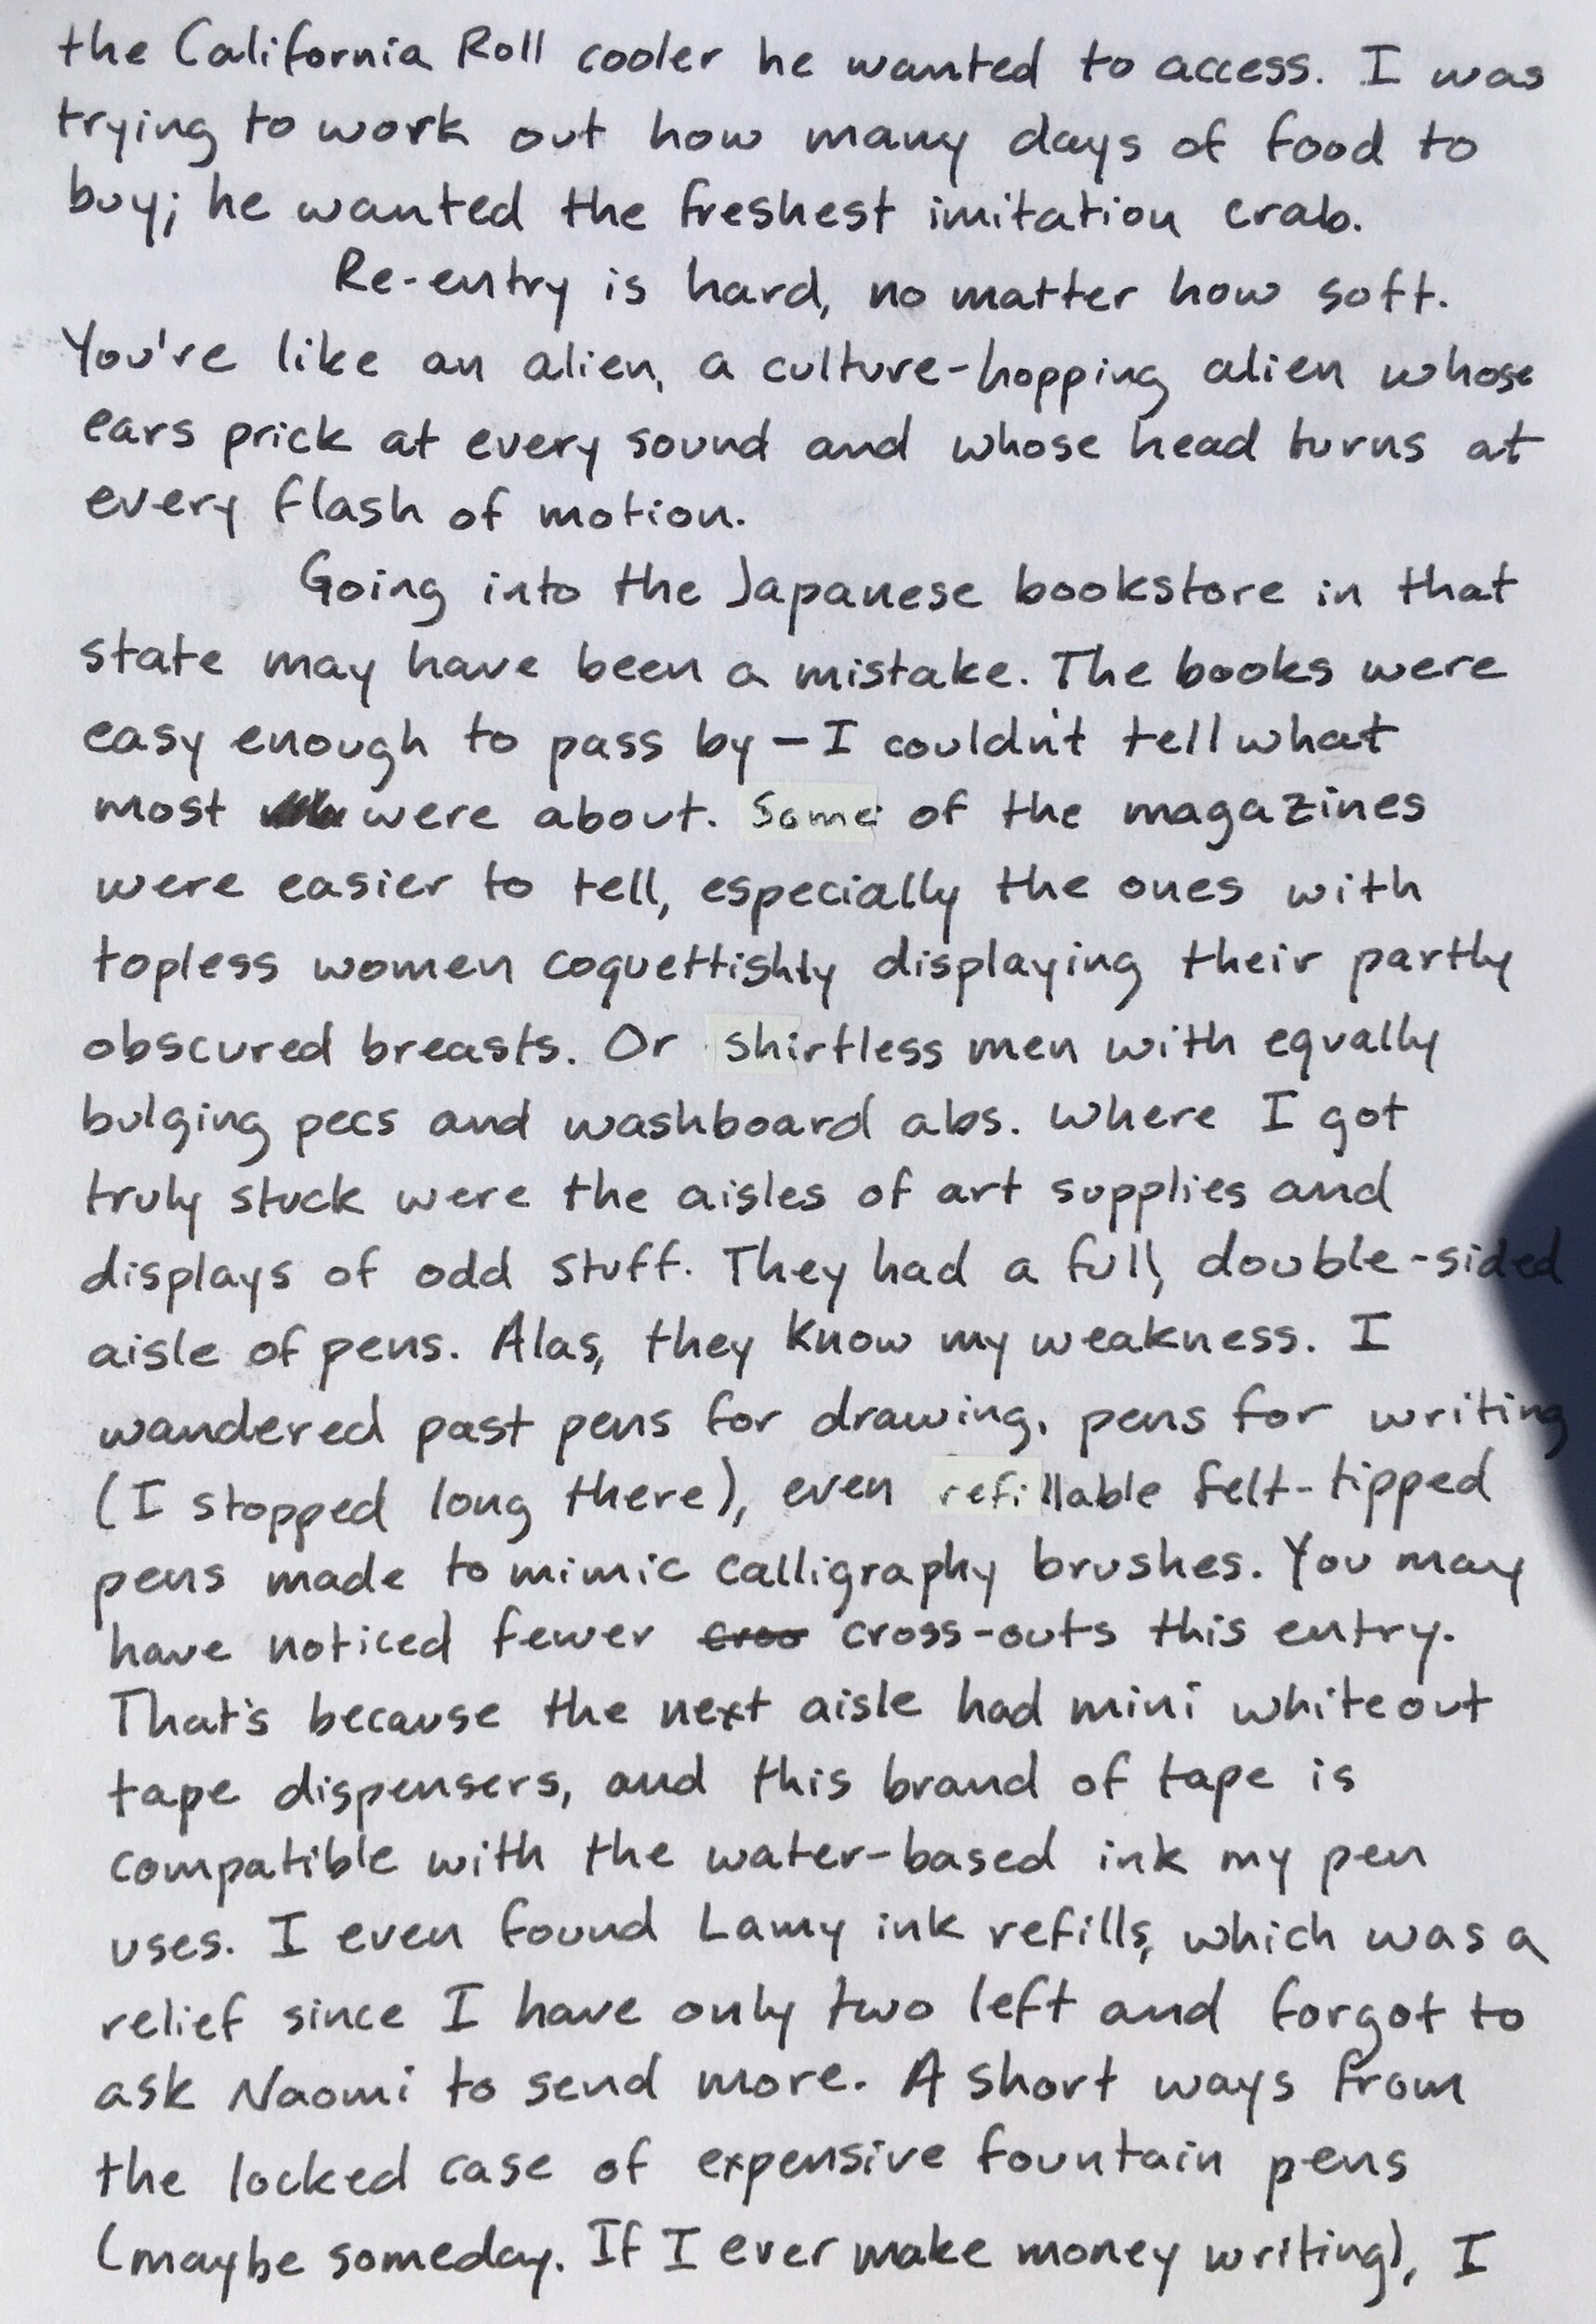 the California Roll cooler he wanted to access. I was
trying to work out how many days of food to
buy; he wanted the freshest imitation crab.
Re-entry is hard, no matter how soft.
You're like an alien, a culture-hopping alien whose
ears prick at every sound and whose head turns at
every flash of motion.
Going into the Japanese bookstore in that
state may have been a mistake. The books were
easy enough to pass by – I couldn't tell what
most were about. Some of the magazines
were easier to tell, especially the ones with
topless women coquettishly displaying their partly
obscured breasts. Or shirtless men with equally
bulging pecs and washboard abs. Where I got
truly stuck were the aisles of art supplies and
displays of odd stuff. They had a full, double-sided
aisle of pens. Alas, they know my weakness. I
wandered past pens for drawing, pens for writing
(I stopped long there), even refillable felt-tipped
pens made to mimic calligraphy brushes. You may
have noticed fewer croo cross-outs this entry.
That's because the next aisle had mini whiteout
tape dispensers, and this brand of tape is
compatible with the water-based ink my pen
uses. I even found Lamy ink refills, which was a
relief since I have only two left and forgot to
ask Naomi to send more. A short ways from
the locked case of expensive fountain pens
(maybe someday. If I ever make money writing), I